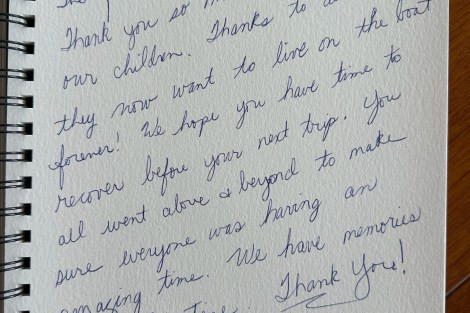 Thank you so
our children. Thanks to
they now want to live on the boat
forever! We hope you have time to
recover before your next trip. You
all went above & beyond to make
sure everyone was having an
amazing time. We have memories
Thank You!